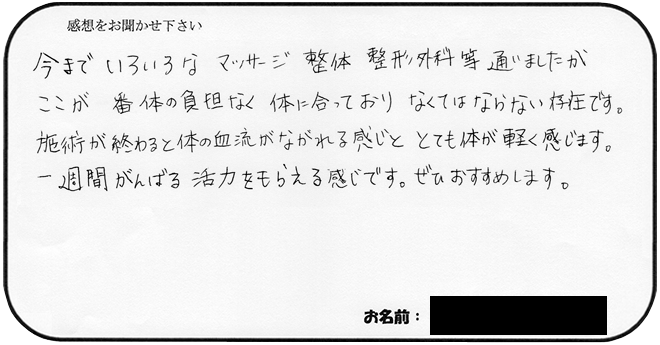 感想をお聞かせ下さい
今まで いろいろな マッサージ 整体 整形外科等 通いましたが
ここが 番体の負担なく 体に合っており なくてはならない存在です。
施術が終わると体の血流がながれる感じと とても体が軽く感じます。
一週間がんばる 活力をもらえる感じです。ぜひおすすめします。
お名前：